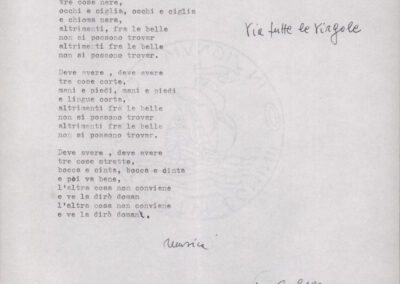 tre cose nere,
occhi e ciglia, occhi e ciglia
e chioma nera,
altrimenti, fra le belle
non si possono trovar
altrimenti fra le belle
non si possono trovar.
Via tutte le virgole
Deve avere , deve avere
tre cose corte,
mani e piedi, mani e piedi
e lingue corte,
altrimenti fra le belle
non si possono trovar
altrimenti fra le belle
non si possono trovar.
Deve avere , deve avere
tre cose strette,
bocca e cinta, bocca e cinta
e poi va bene,
l'altra cosa non conviene
e ve la dirò doman
l'altra cosa non conviene
e ve la dirò doman.
musica